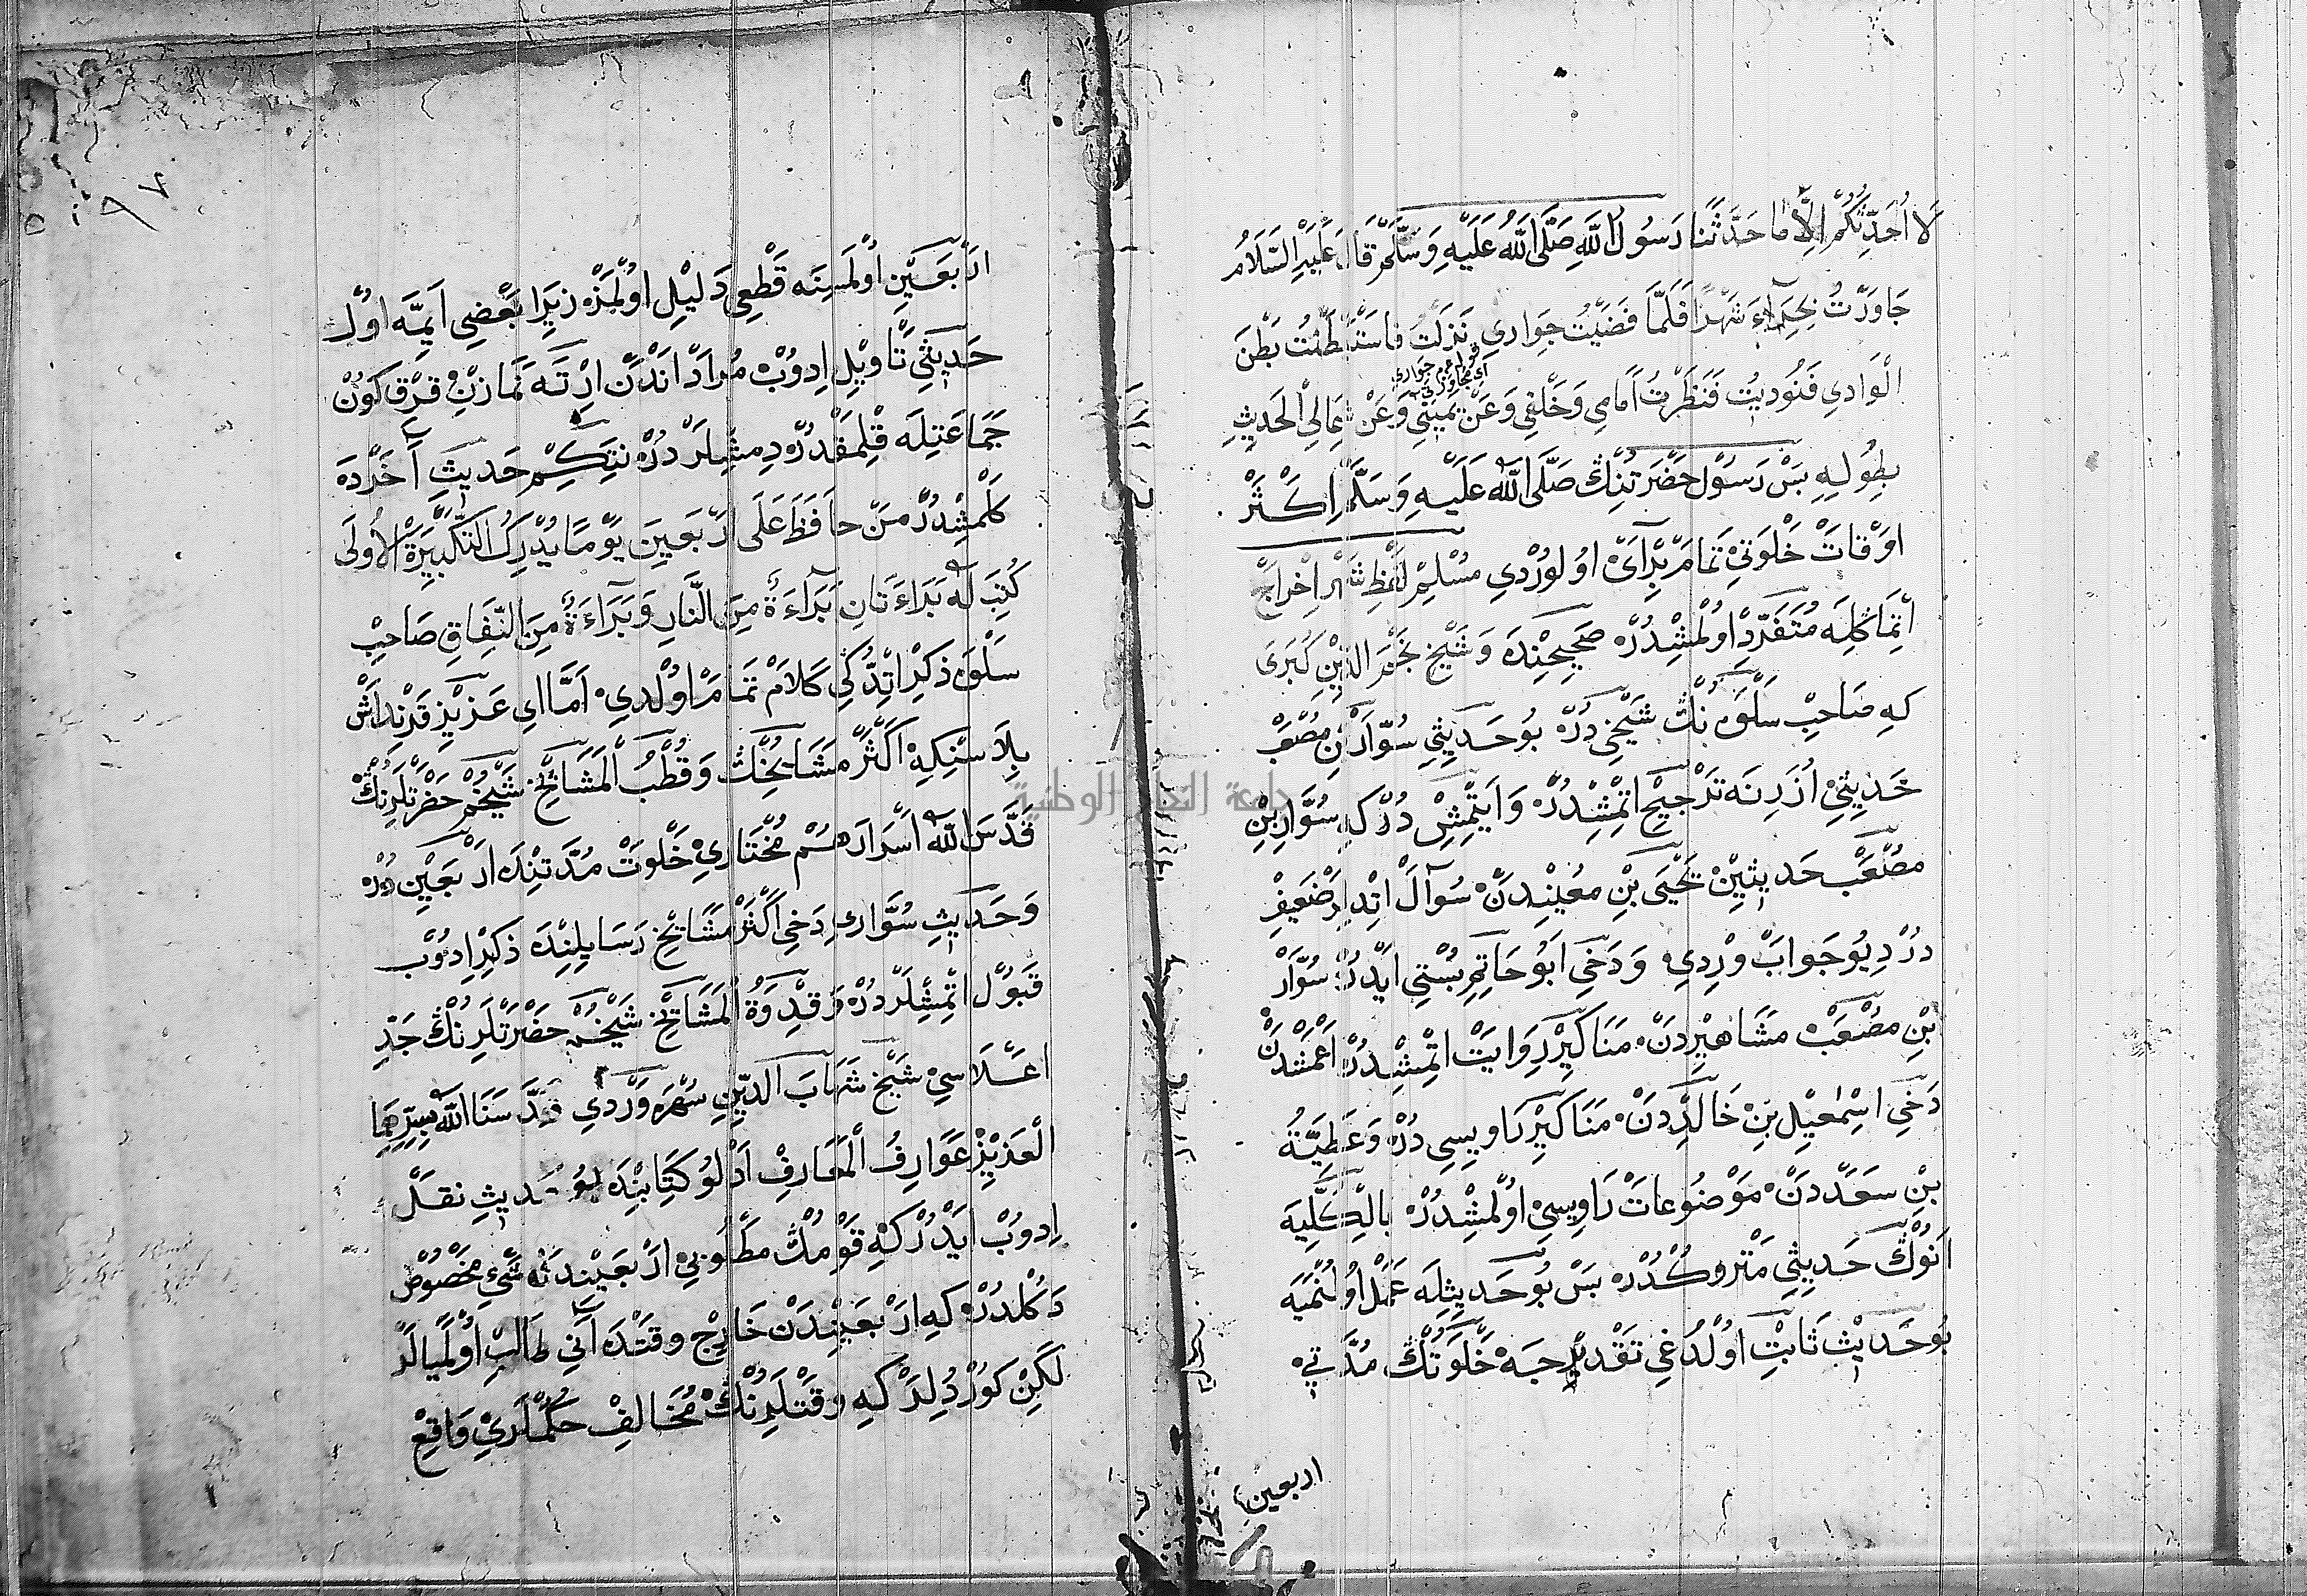 لَا اُحَدِّثُكُمْ اِلَّا مَا حَدَّثَنَا رَسُولُ اللّٰهِ صَلَّى اللّٰهُ عَلَيْهِ وَسَلَّمَ قَالَ عَلَيْهِ السَّلَامُ
جَاوَرْتُ بِحِرَآءَ شَهْرًا فَلَمَّا قَضَيْتُ جِوَارِى نَزَلْتُ فَاسْتَبْطَنْتُ بَطْنَ
اَىْ مجاورتى
الْوَادِى فَنُودِيْتُ فَنَظَرْتُ اَمَامِى وَخَلْفِى وَعَنْ يَمِينِى وَعَنْ شِمَالِى الْحَدِيثِ
بِطُولِهِ بَسْ رَسُولْ حَضْرَتِنُكْ صَلَّى اللّٰهُ عَلَيْهِ وَسَلَّمَ اَكْثَرْ
اَوْقَاتْ خَلْوَتِى تَمَامْ بِرْ اَىْ اُولُورْدِى مُسْلِمْ لَفْظِ شَهْرْ اِخْرَاجْ
اِتْمَاكْلِه مُتَفَرِّدْ اُولْمِشْدُرْ صَحِيحِنْدَه وَشَيْخْ نَجْمُ الدِّينِ كُبْرَى
كِه صَاحِبْ سَلْوَه نُڭْ شَيْخِى دُرْ بُو حَدِيثِى سُوَّارْ بِنْ مُصْعَبْ
حَدِيثِى اُزَرِنَه تَرْجِيحْ اِتْمِشْدُرْ وَاَيْتْمِشْ دُرْ كِه سُوَّارِ بْنِ
مُصْعَبْ حَدِيثِينْ يَحْيَى بْنِ مُعِينْدِنْ سُوآلْ اِتْدِلَرْ ضَعِيفْ
دُرْ دِيُو جَوَابْ وِرْدِى وَدَخِى اَبُو حَاتِمِ بُسْتِى اَيْدُرْ سُوَّارْ
بْنِ مُصْعَبْ مَشَاهِيرِدَنْ مَنَاكِيرْ رِوَايَتْ اِتْمِشْدُرْ اَعْمَشْدَنْ
دَخِى اِسْمٰعِيلِ بْنِ خَالِدْدَنْ مَنَاكِيرْ رَاوِيسِى دُرْ وَعَطِيَّةُ
بْنِ سَعَدْدَنْ مَوْضُوعَاتْ رَاوِيسِى اُولْمِشْدُرْ بِالْكُلِّيَه
اَنُوكْ حَدِيثِى مَتْرُوكْدُرْ بَسْ بُو حَدِيثِلَه عَمَلْ اُولُنْمَيَه
بُو حَدِيثْ ثَابِتْ اُولْدُغِى تَقْدِيرْجَه خَلْوَتُڭْ مُدَّتِى
اربعين
اَرْبَعِينْ اُولْمَسِنَه قَطْعِى دَلِيلْ اُولْمَزْ زِيرَا بَعْضِى اَيِمَّه اُولْ
حَدِيثِى تَاْوِيلْ اِدُوبْ مُرَادْ اَنْدَنْ اِرْتَه نَمَازِنْ قِرْقْ كَوُنْ
جَمَاعَتِلَه قِلْمَقْدُرْ دِمِشْلَرْدُرْ نِتَكِمْ حَدِيثِ اَخَرْدَه
كَلْمِشْدُرْ مَنْ حَافَظَ عَلَى اَرْبَعِينَ يَوْمًا يُدْرِكُ التَّكْبِيرَةَ الْاُولَى
كُتِبَ لَهُ بَرَاءَتَانِ بَرَآءَةٌ مِنَ النَّارِ وَبَرَآءَةٌ مِنَ النِّفَاقِ صَاحِبْ
سَلْوَه ذِكْرْ اِتْدُكِى كَلَامْ تَمَامْ اُولْدِى اَمَّا اِى عَزِيزْ قَرْنِدَاشْ
بِلَاسِنْكِه اَكْثَرْ مَشَايِخُڭْ وَقُطْبُ الْمَشَايِخْ شَيْخُمْ حَضْرَتْلَرِنُڭْ
قَدَّسَ اللّٰهُ اَسْرَارَهُمْ مُخْتَارِى خَلْوَتْ مُدَّتِنْدَه اَرْبَعِينْ دُرْ
وَحَدِيثِ سُوَّارِى دَخِى اَكْثَرْ مَشَايِخْ رَسَايِلِنْدَه ذِكْرْ اِدُوبْ
قَبُولْ اِتْمِشْلَرْدُرْ وَقِدْوَةُ الْمَشَايِخْ شَيْخُمْ حَضْرَتْلَرِنُڭْ جَدِّ
اَعْلَاسِى شَيْخْ شَهَابَ الدِّينِ سُهْرَوَرْدِى قَدَّسَنَا اللّٰهُ بِسِرِّهِمَا
الْعَزِيزْ عَوَارِفُ الْمَعَارِفْ اَدْلُو كِتَابِنْدَه بُو حَدِيثِ نَقْلْ
اِدُوبْ اَيْدُرْ كِه قَوْمُكْ مَطْلُوبِى اَرْبَعِينْدَنْ شَىْءِ مَخْصُوصْ
دَكُلْدُرْ كِه اَرْبَعِينْدَنْ خَارِجْ وَقْتْدَه اَنِى طَالِبْ اُولْمَيَالَرْ
لَكِنْ كُورْدِلَرْ كِه وَقْتْلَرِنُڭْ مُخَالِفْ حُكْمْلَرِى وَاقِعْ
جامعة النجاح الوطنية